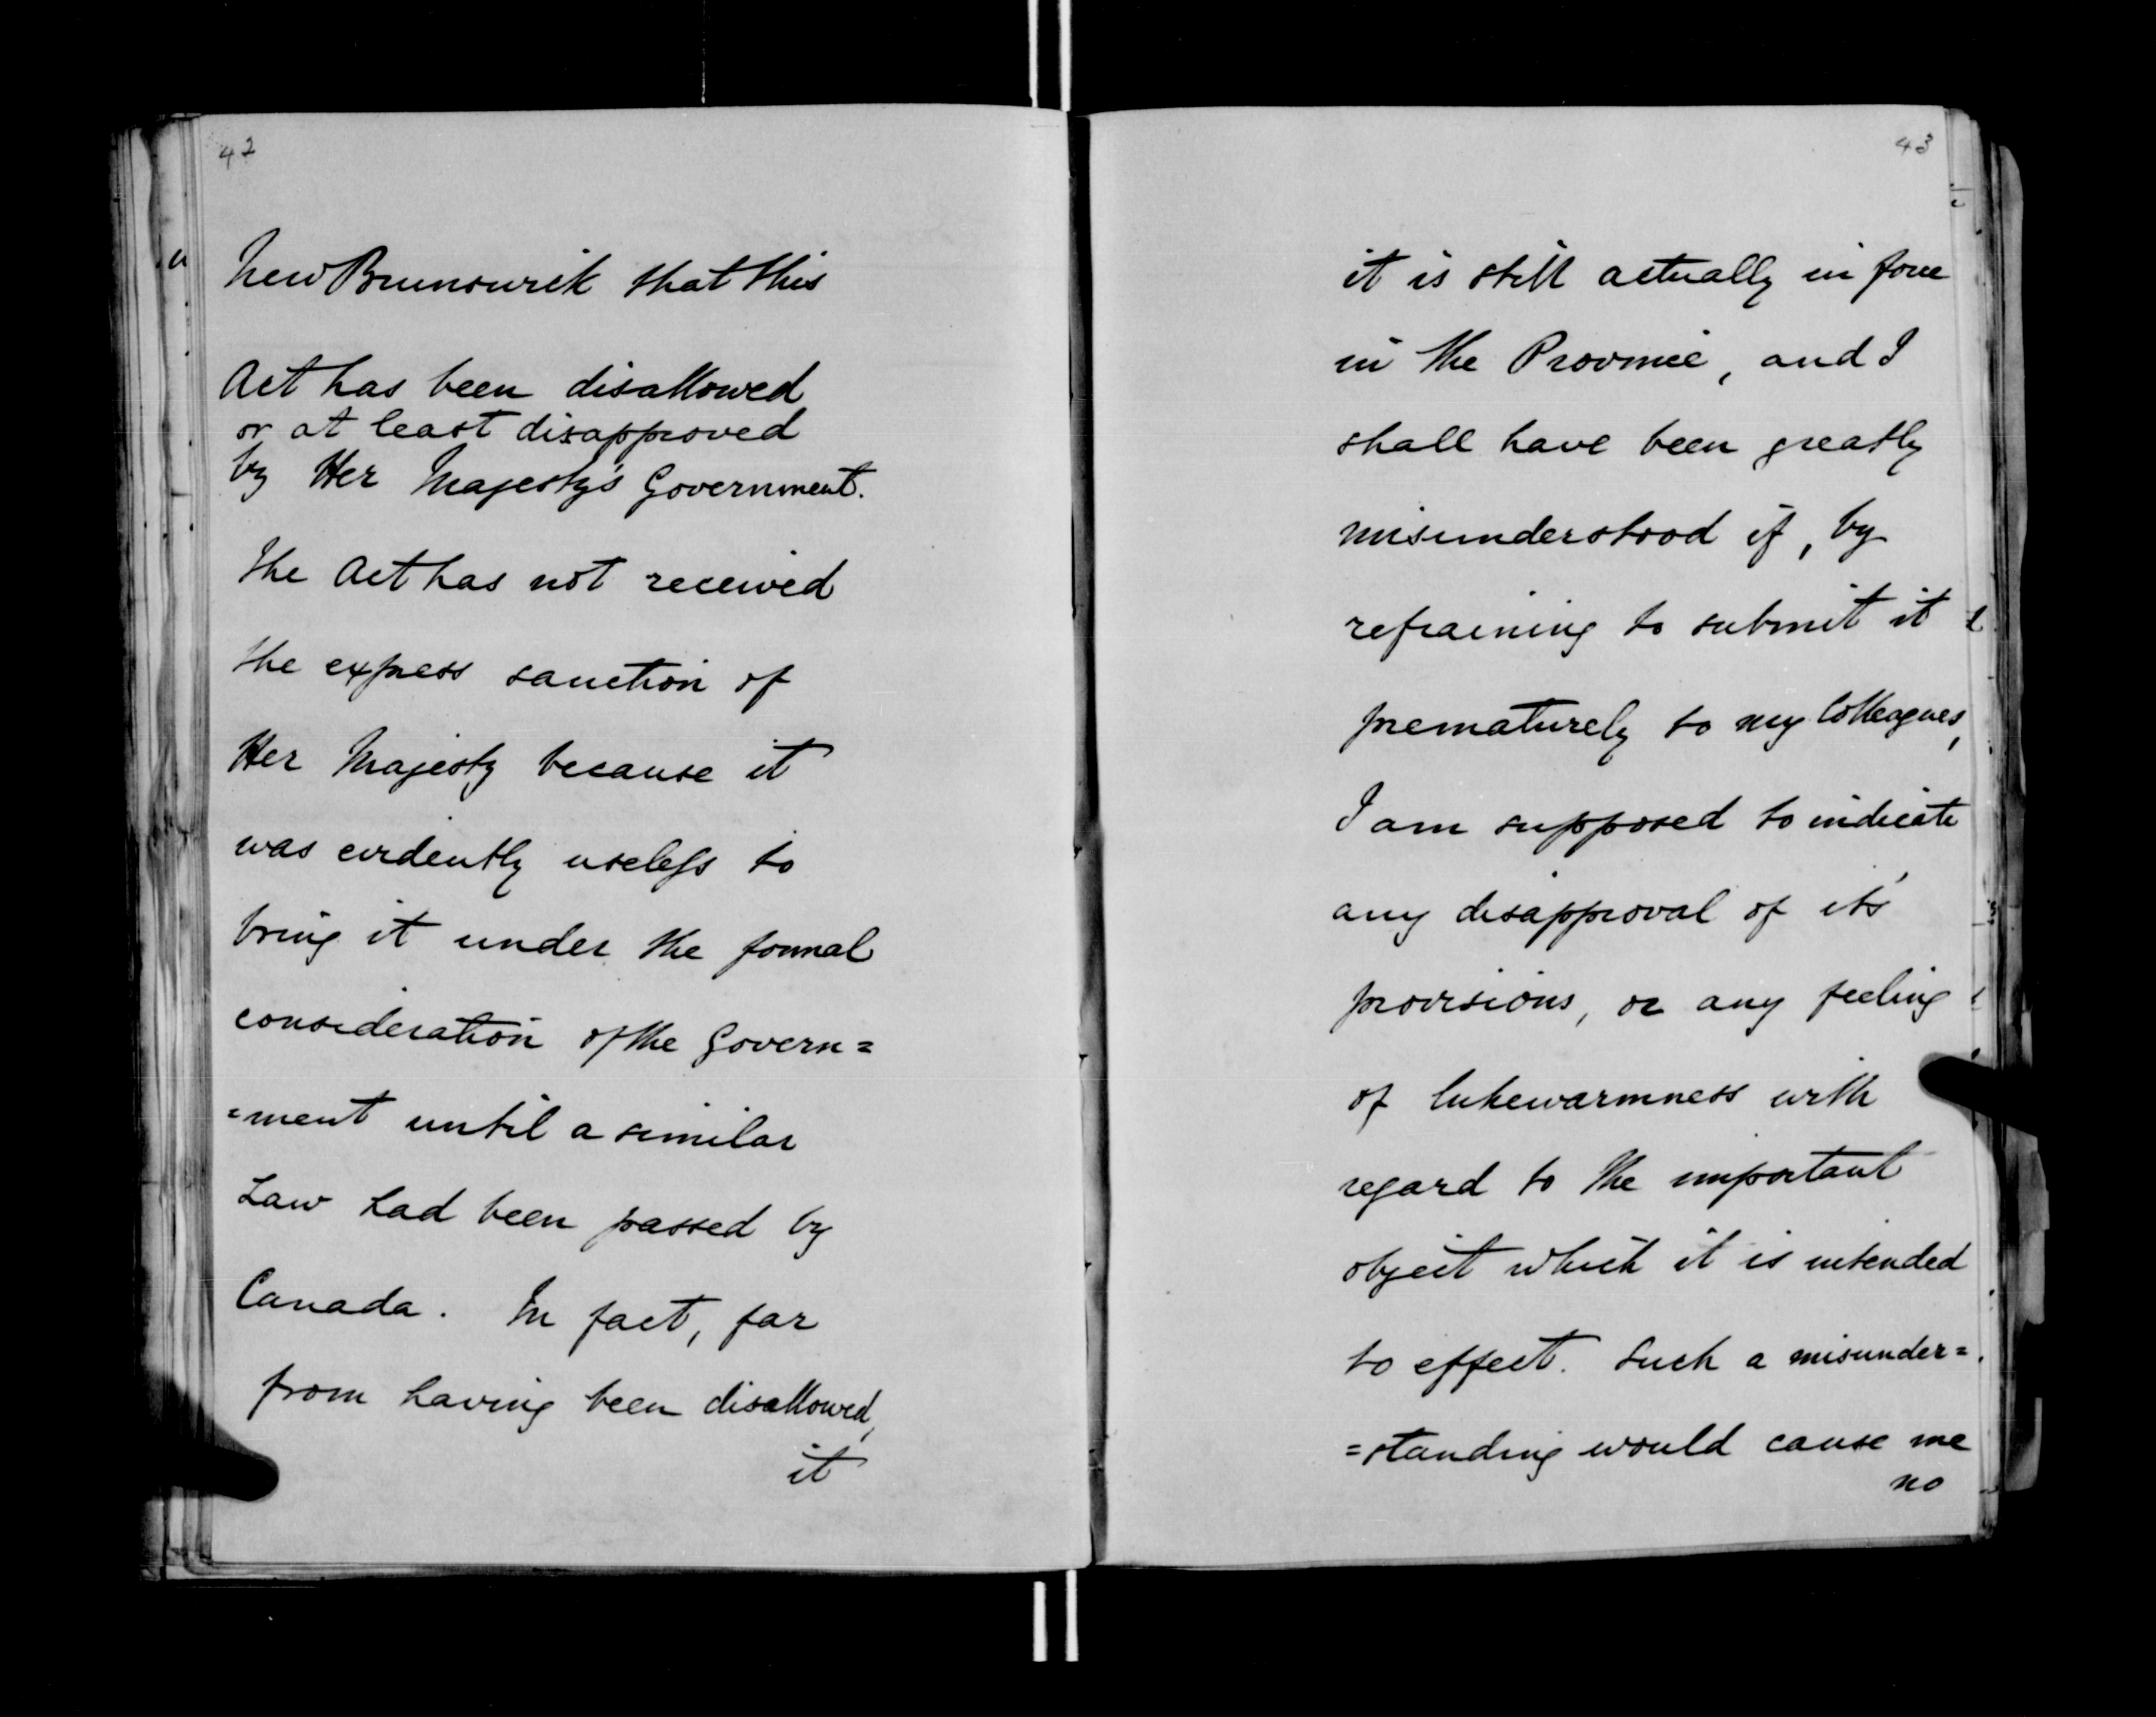 42
New Brunswick that this
Act has been disallowed
or at least disapproved
by Her Majesty's Government.
The Act has not received
the express sanction of
Her Majesty because it
was evidently useless to
bring it under the formal
consideration of the Govern=
=ment until a similar
Law had been passed by
Canada. In fact, far
from having been disallowed,
it
43
it is still actually in force
in the Province, and I
shall have been greatly
misunderstood if, by
refraining to submit it
prematurely to my Colleagues,
I am supposed to indicate
any disapproval of it's
provisions, or any feeling
of lukewarmness with
regard to the important
object which it is intended
to effect. Such a misunder=
=standing would cause me
no